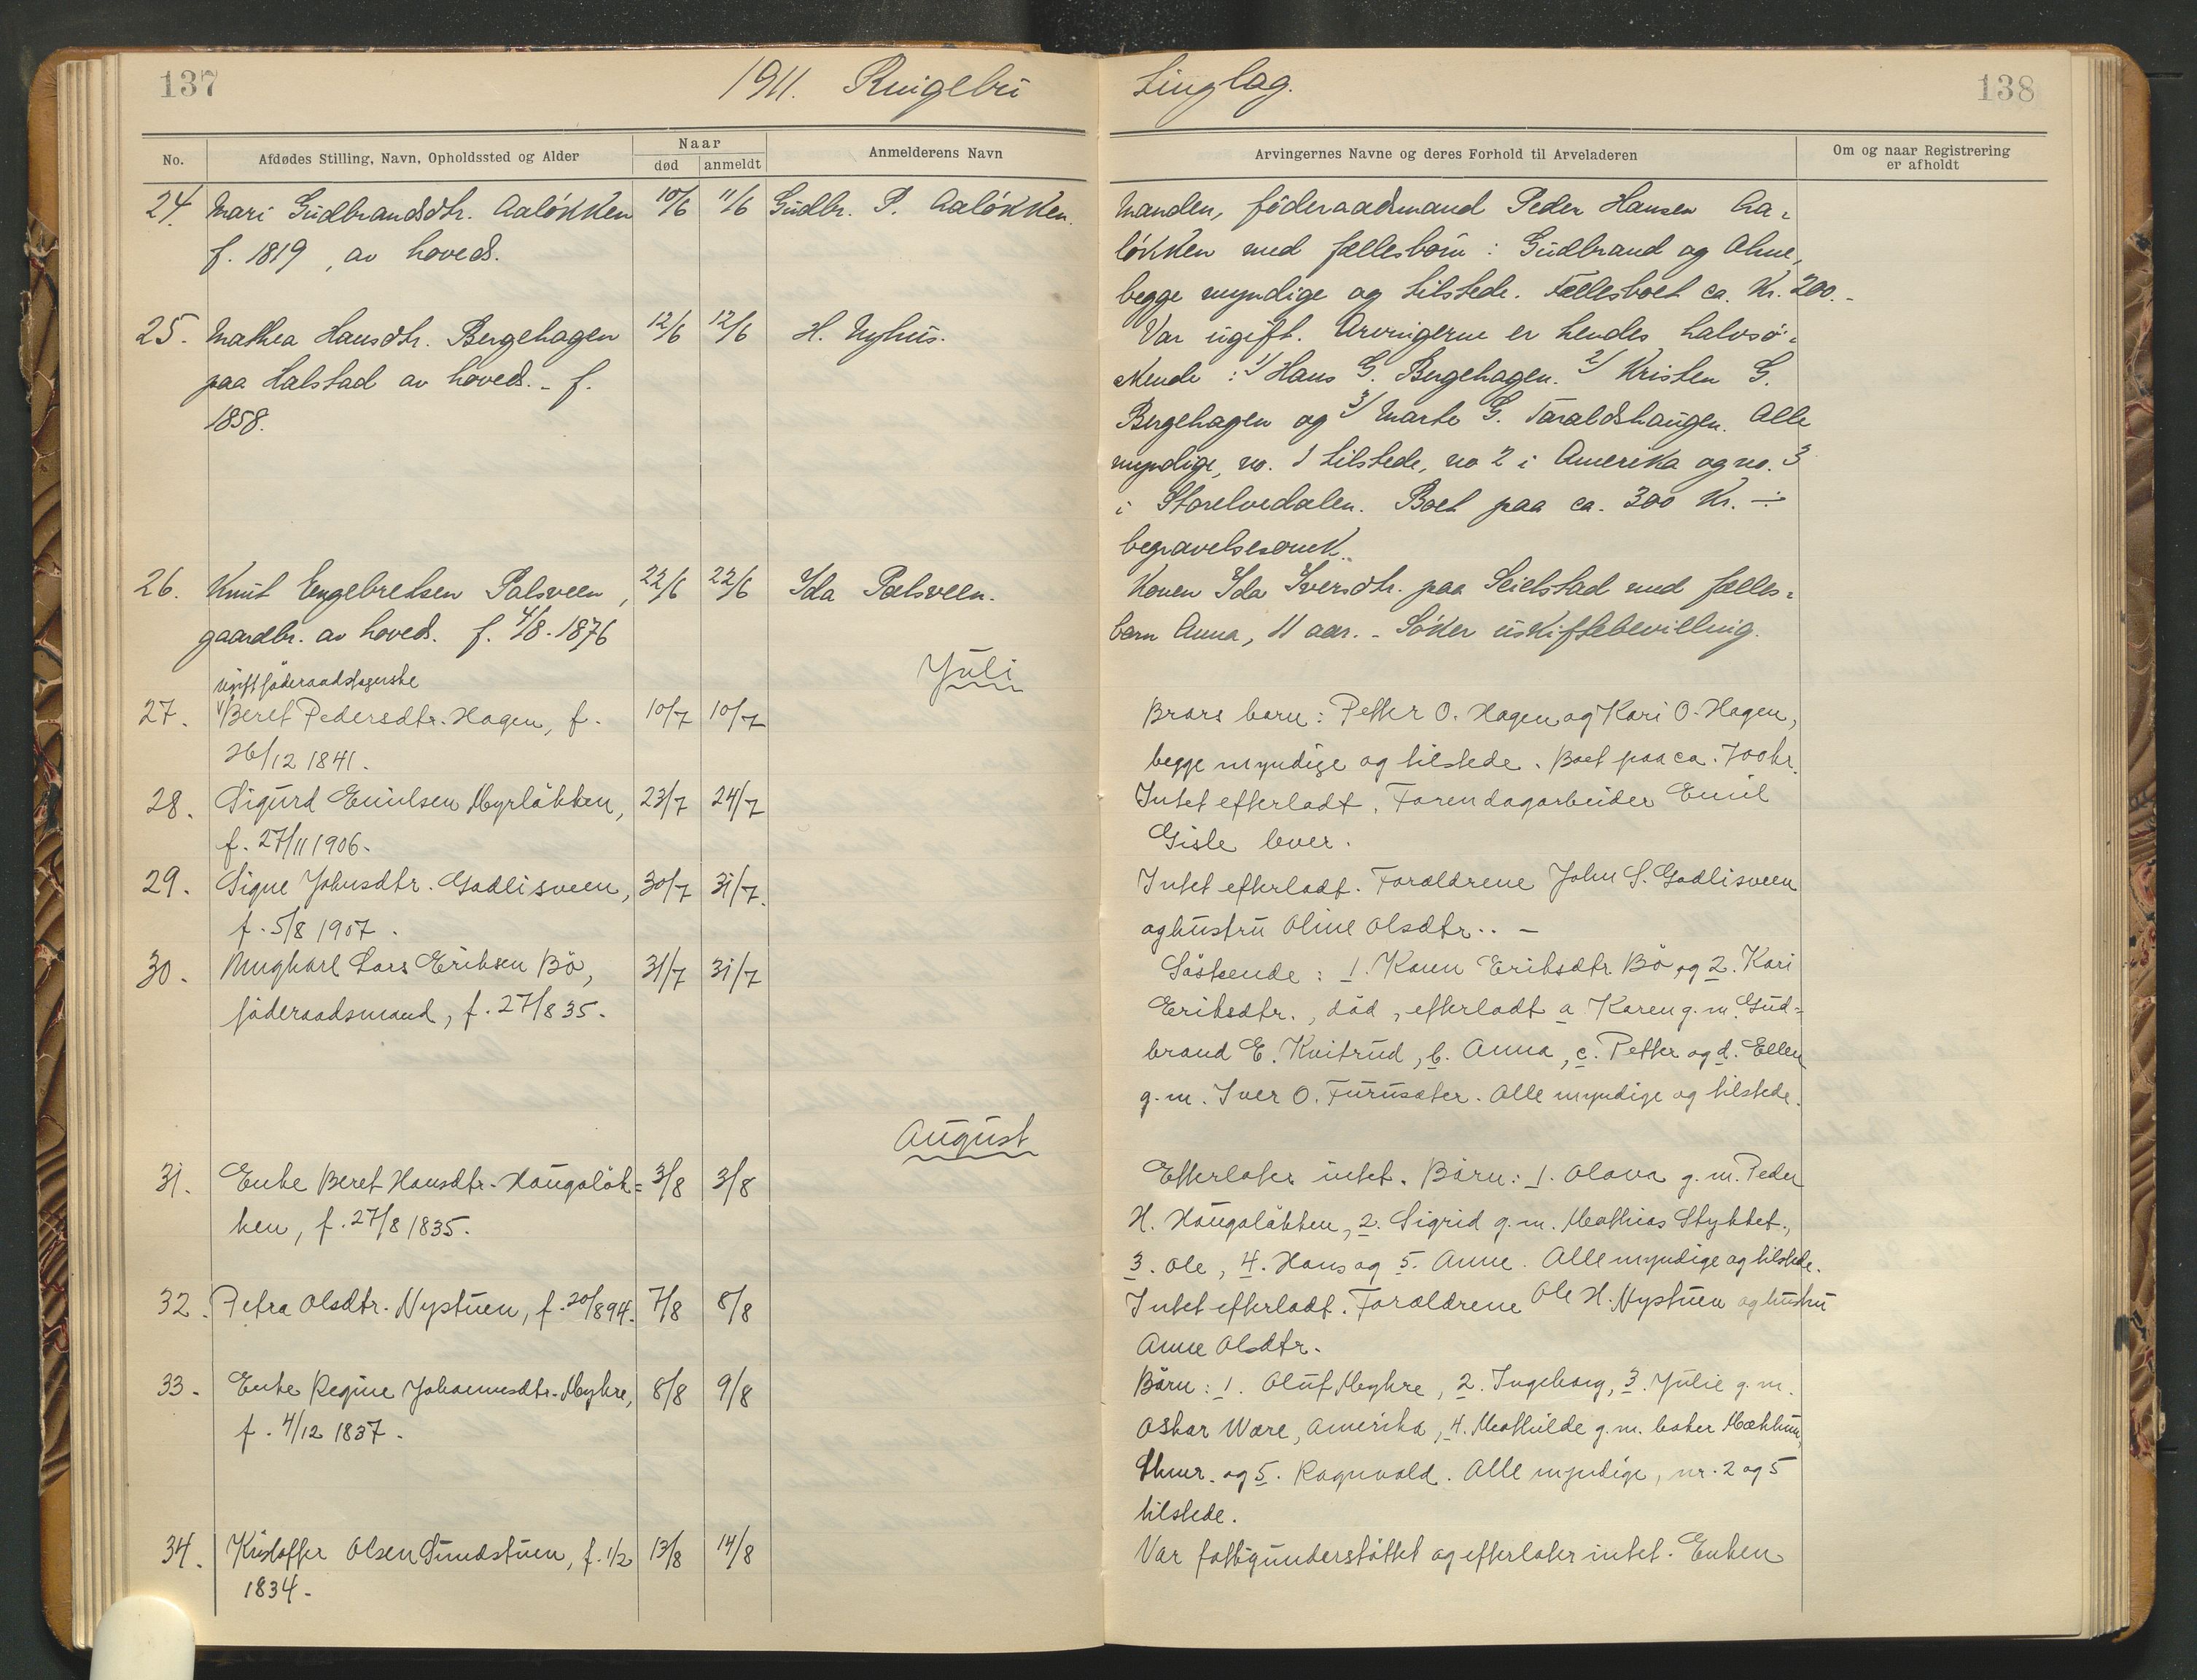 137
1911. Ringebu
Tinglag.
138
No.
Afdødes Stilling, Navn, Opholdssted og Alder
Naar
død
anmeldt
Anmelderens Navn
Arvingernes Navne og deres Forhold til Arveladeren
Om og naar Registrering
er afholdt
24. Mari Gudbrandsdtr. Aaløkken 10/6 11/6 Gudbr. P. Aaløkken.
f. 1819, av hoveds.
Manden, føderaadsmand Peder Hansen Aa-
løkken med fællesbørn: Gudbrand og Ahne,
begge myndige og tilstede. Fællesboet ca. Kr. 200.-
25. Mathea Hansdtr. Bergehagen 12/6 12/6 H. Nyhus.
paa Halstad av hoved. - f.
1858.
Var ugift. Arvingerne er hendes halvsø-
skende: 1/ Hans G. Bergehagen. 2/ Kristen G.
Bergehagen og 3/ Marte G. Taraldshaugen. Alle
myndige, no. 1 tilstede, no 2 i Amerika og no. 3
i Storelvedalen. Boet paa ca. 300 Kr. ÷
begravelsesomk.
26. Knut Engebretsen Palsveen, 22/6 22/6 Ida Palsveen.
gaardbr. av hoveds. f. 4/8-1876
Konen Ida Iversdtr. paa Seielstad med fælles-
barn Anna, 11 aar. - Søker uskiftebevilling.
Juli
ugift føderaadstagerske
27. Beret Pedersdtr. Hagen, f. 10/7 10/7
26/12 1841.
Brors barn: Petter O. Hagen og Kari O. Hagen,
begge myndige og tilstede. Boet paa ca. 700 kr.
28. Sigurd Emilsen Myrløkken, 23/7 24/7
f. 27/11 1906.
Intet efterladt. Faren dagarbeider Emil
Gisle lever.
29. Signe Johnsdtr. Gadlisveen, 30/7 31/7.
f. 5/8 1907.
Intet efterladt. Forældrene John S. Gadlisveen
og hustru Oline Olsdtr. . -
30. Ungkarl Lars Eriksen Bø, 31/7 31/7
føderaadsmand, f. 27/8 35.
Søskende: 1. Karen Eriksdtr. Bø og 2. Kari
Eriksdtr., død, efterladt a Karen g. m. Gud-
brand E. Kvitrud, b. Anna, c. Petter og d. Ellen
g. m. Iver O. Furusæter. Alle myndige og tilstede.
August
31. Enke Beret Hansdtr. Haugaløk- 3/8 3/8
ken, f. 27/8 1835.
Efterlater intet. Børn: 1. Olava g. m. Peder
H. Haugaløkken, 2. Sigrid g. m. Mathias Stykket.,
3. Ole, 4. Hans og 5. Anne. Alle myndige og tilstede.
32. Petra Olsdtr. Nystuen, f. 20/8 94. 7/8 8/8
Intet efterladt. Forældrene Ole H. Nystuen og hustru
Anne Olsdtr.
33. Enke Regine Johannesdtr. Myhre, 8/8 9/8
f. 4/12 1837.
Børn: 1. Oluf Myhre, 2. Ingeborg, 3. Julie g. m.
Oskar Ware, Amerika, 4. Mathilde g. m. baker
og 5. Ragnvald. Alle myndige, nr. 2 og 5
tilstede.
34. Kristoffer Olsen Sundstuen, f. 1/2 13/8 14/8
1834.
Var fattigunderstøttet og efterlater intet. Enken